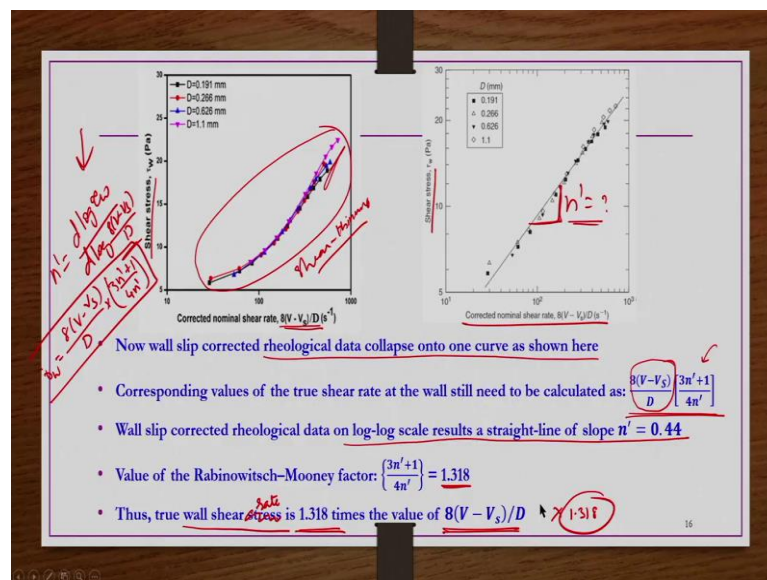 30
25
20
15
10
5
D=0.191 mm
D=0.266 mm
D=0.626 mm
D=1.1 mm
Shear stress, τw (Pa)
10 100 1000
Corrected nominal shear rate, 8(V - Vs)/D (s⁻¹)
shear-thinning
30
20
10
5
D (mm)
0.191
0.266
0.626
1.1
Shear stress, τw (Pa)
n' = ?
10¹ 10² 10³
Corrected nominal shear rate, 8(V – Vs)/D (s⁻¹)
n' = d log τw / d log 8(V-Vs)/D
γ̇w = 8(V-Vs)/D × (3n'+1/4n')
• Now wall slip corrected rheological data collapse onto one curve as shown here
• Corresponding values of the true shear rate at the wall still need to be calculated as: 8(V−Vs)/D [3n'+1/4n']
• Wall slip corrected rheological data on log-log scale results a straight-line of slope n' = 0.44
• Value of the Rabinowitsch–Mooney factor: {3n'+1/4n'} = 1.318
rate
• Thus, true wall shear stress is 1.318 times the value of 8(V − Vs)/D × 1.318
16